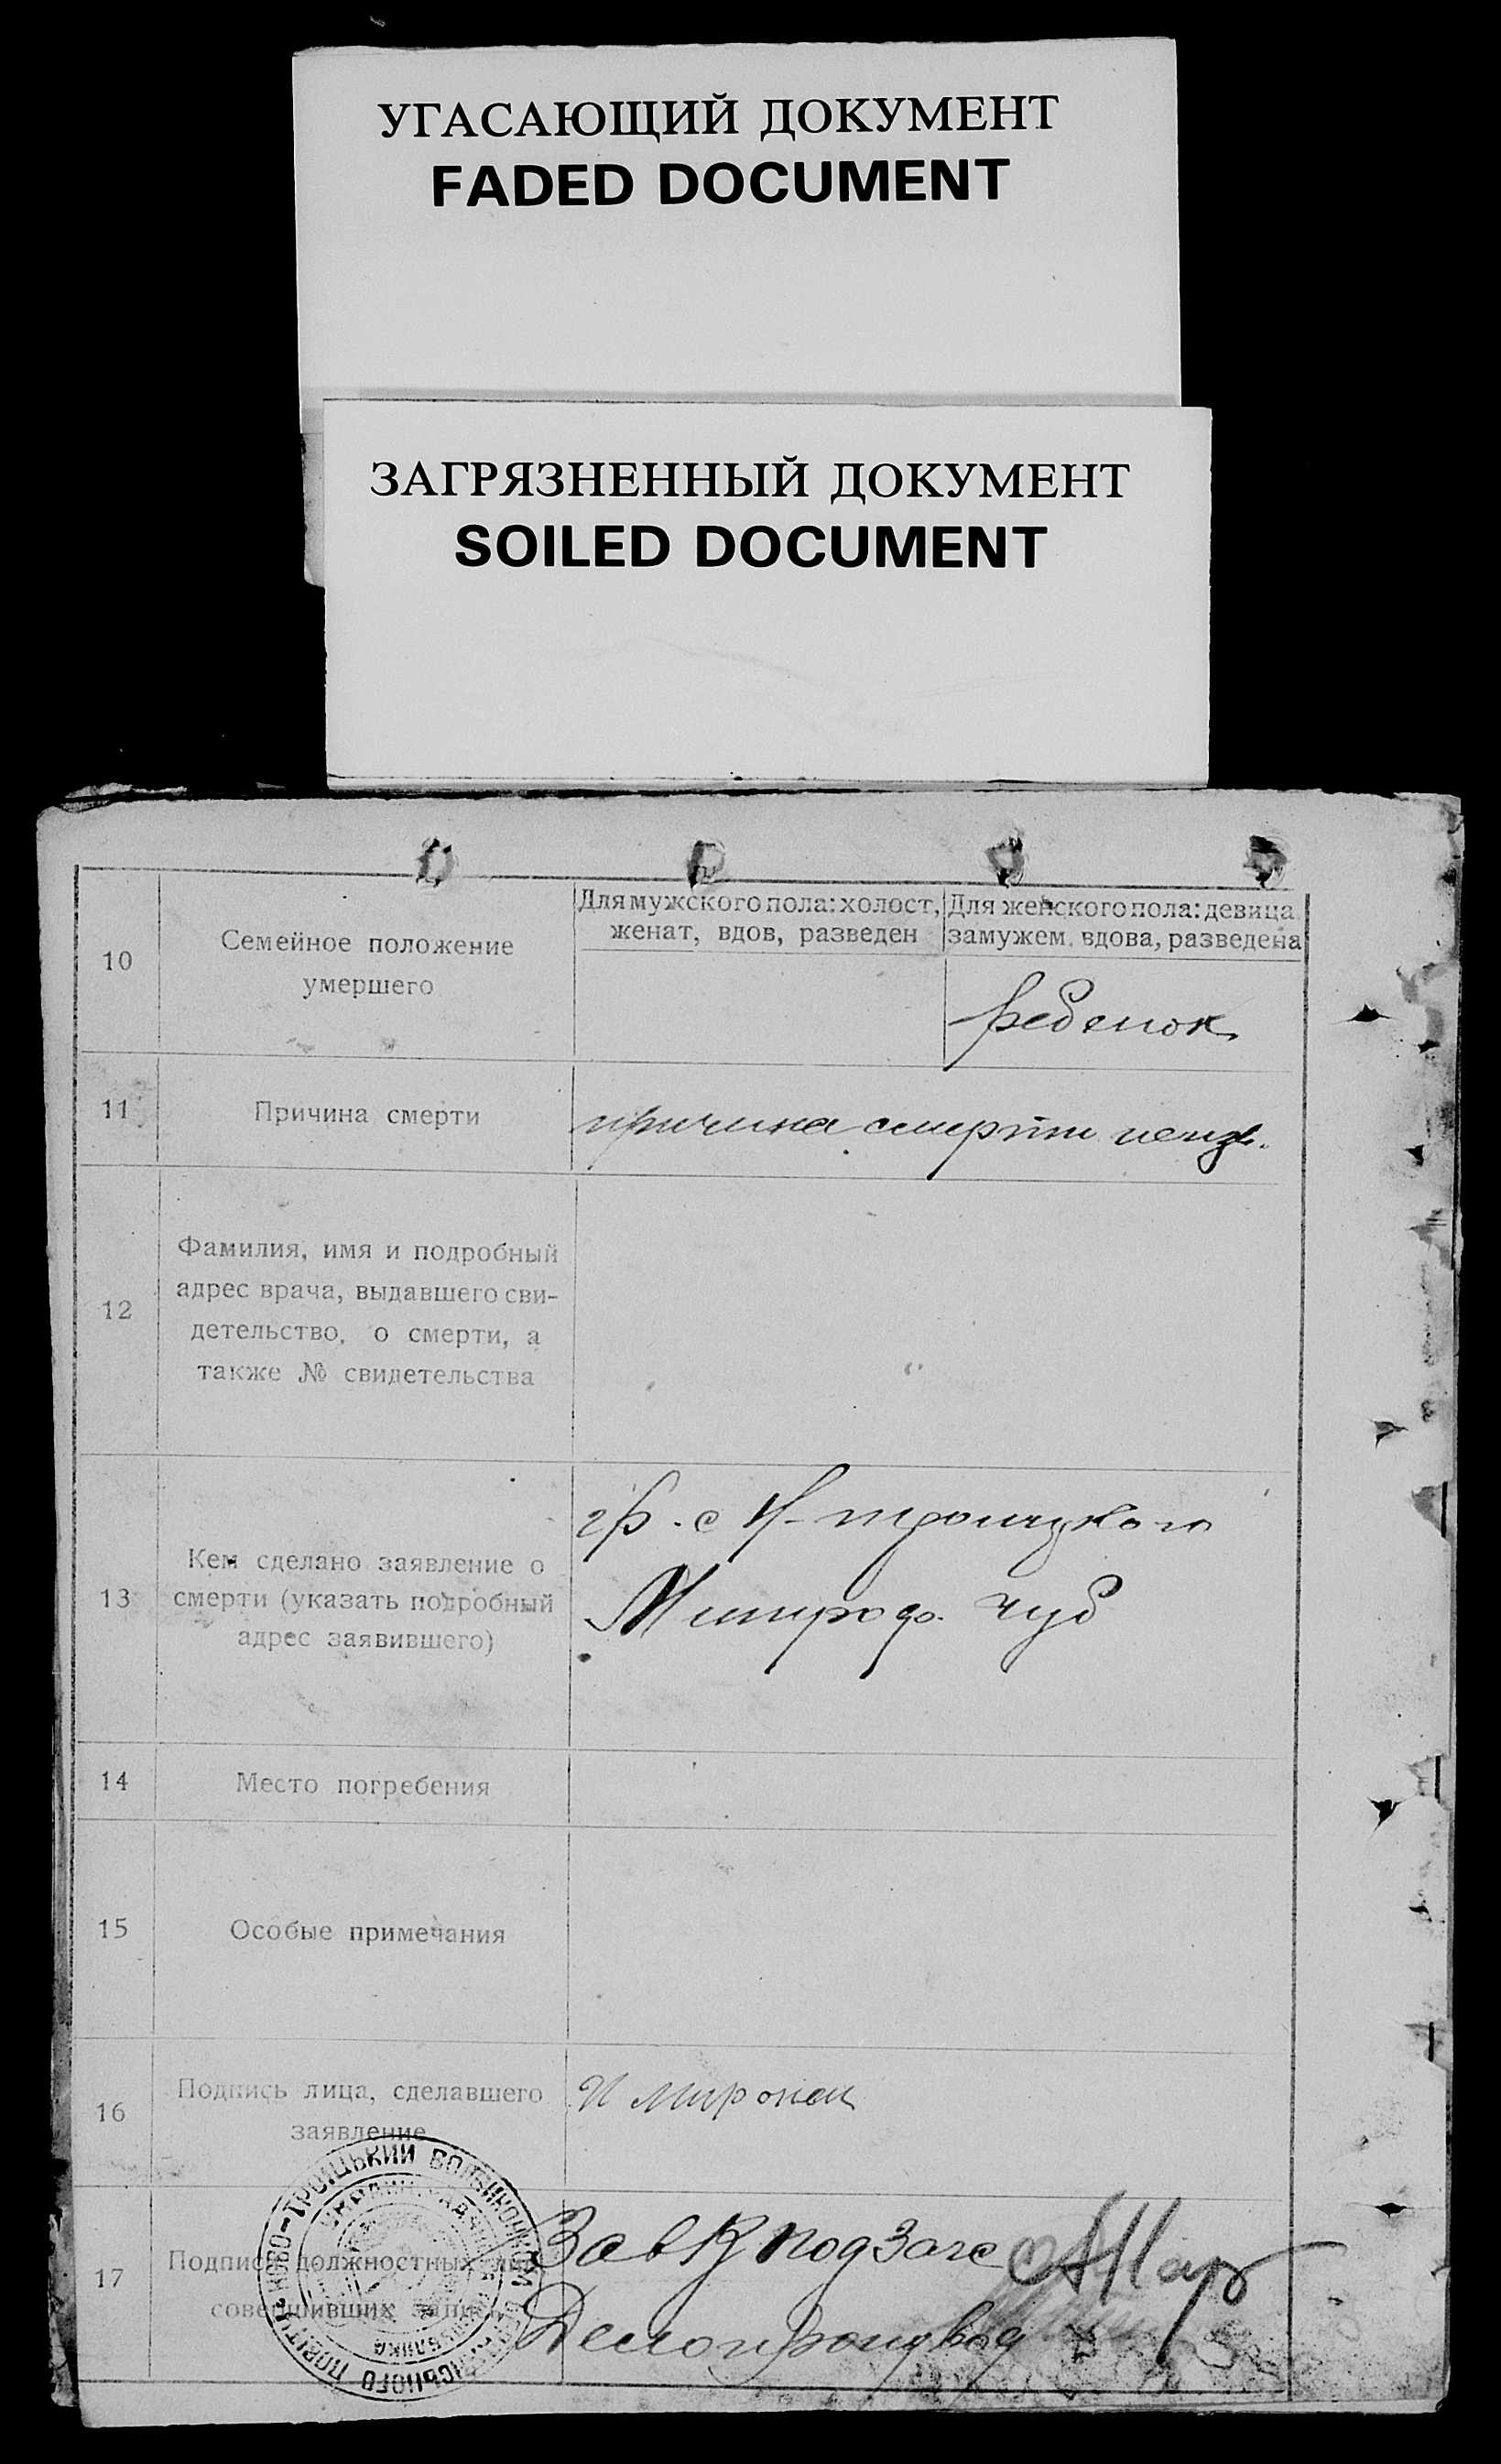 УГАСАЮЩИЙ ДОКУМЕНТ
FADED DOCUMENT
ЗАГРЯЗНЕННЫЙ ДОКУМЕНТ
SOILED DOCUMENT
10
Семейное положение
умершего
Для мужского пола: холост,
женат, вдов, разведен
Для женского пола: девица
замужем, вдова, разведена
ребенок
11
Причина смерти
причина смерти неизв.
12
Фамилия, имя и подробный
адрес врача, выдавшего сви-
детельство, о смерти, а
также № свидетельства
13
Кем сделано заявление о
смерти (указать подробный
адрес заявившего)
гр. с Н-троицкого
Митроф. Чуб
14
Место погребения
15
Особые примечания
16
Подпись лица, сделавшего
заявление
17
Подписи должностных лиц
совершивших запись
Зав подзагс
Делопроизвод
НОВО-ТРОЇЦЬКИЙ ВОЛВИКОНКОМ